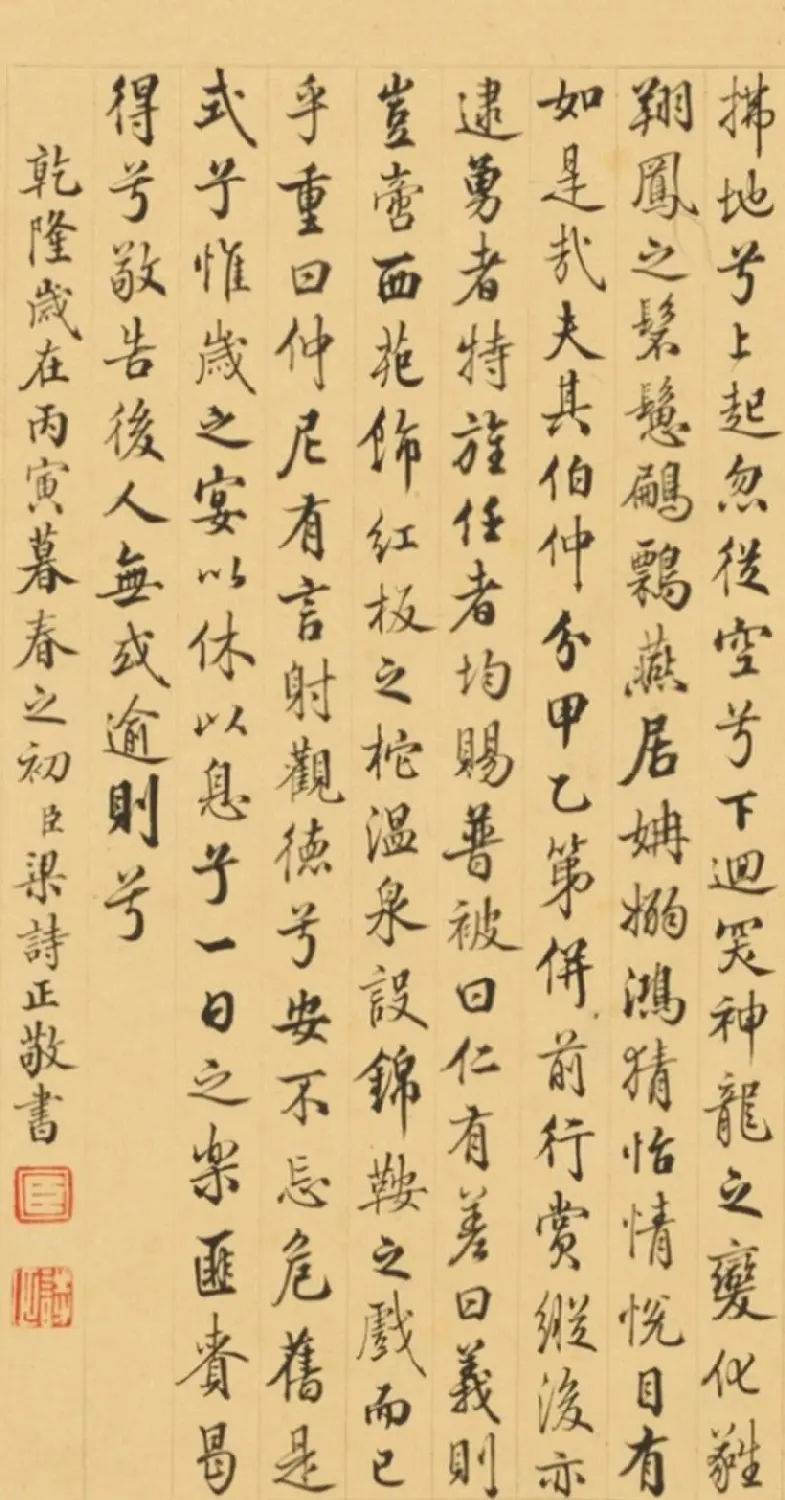 拂地兮上起忽從空兮下迴突神龍之變化
翔鳳之燕居鴻猜怡情悅目有
如是哉夫其伯仲分甲乙第併前行賞縱後亦
逮勇者特旌任者均賜普被曰仁有差曰義則
豈啻西苑飾紅板之柁溫泉設錦鞍之戲而已
乎重曰仲尼有言射觀德兮安不忘危舊是
式兮惟歲之宴以休以息兮一日之樂匪賚曷
得兮敬告後人無或逾則兮
乾隆歲在丙寅暮春之初臣梁詩正敬書
臣